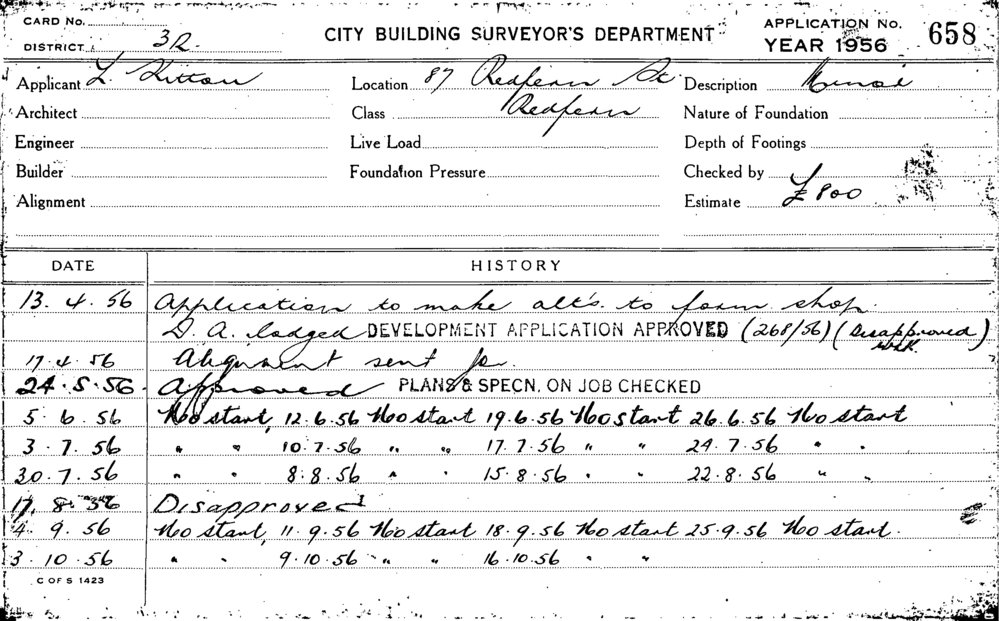 CARD No.
DISTRICT 3R.
CITY BUILDING SURVEYOR'S DEPARTMENT
APPLICATION No. 658
YEAR 1956
Applicant L. Kitton Location 87 Redfern St Description Minor
Architect Class Redfern Nature of Foundation
Engineer Live Load Depth of Footings
Builder Foundation Pressure Checked by
Alignment Estimate £800
DATE HISTORY
13. 4. 56 Application to make alt's. to form shop.
D. A. lodged DEVELOPMENT APPLICATION APPROVED (268/56) (Disapproved)
17. 4. 56 Alignment sent for.
24. 5. 56. Approved PLANS & SPECN. ON JOB CHECKED
5. 6. 56 No start, 12.6.56 No start 19.6.56 No start 26.6.56 No start
3. 7. 56 " " 10.7.56 " " 17.7.56 " " 24.7.56 " "
30. 7. 56 " " 8.8.56 " " 15.8.56 " " 22.8.56 " "
17. 8. 56 Disapproved
4. 9. 56 No start, 11.9.56 No start 18.9.56 No start 25.9.56 No start.
3. 10. 56 " " 9.10.56 " " 16.10.56 " "
C OF S 1423